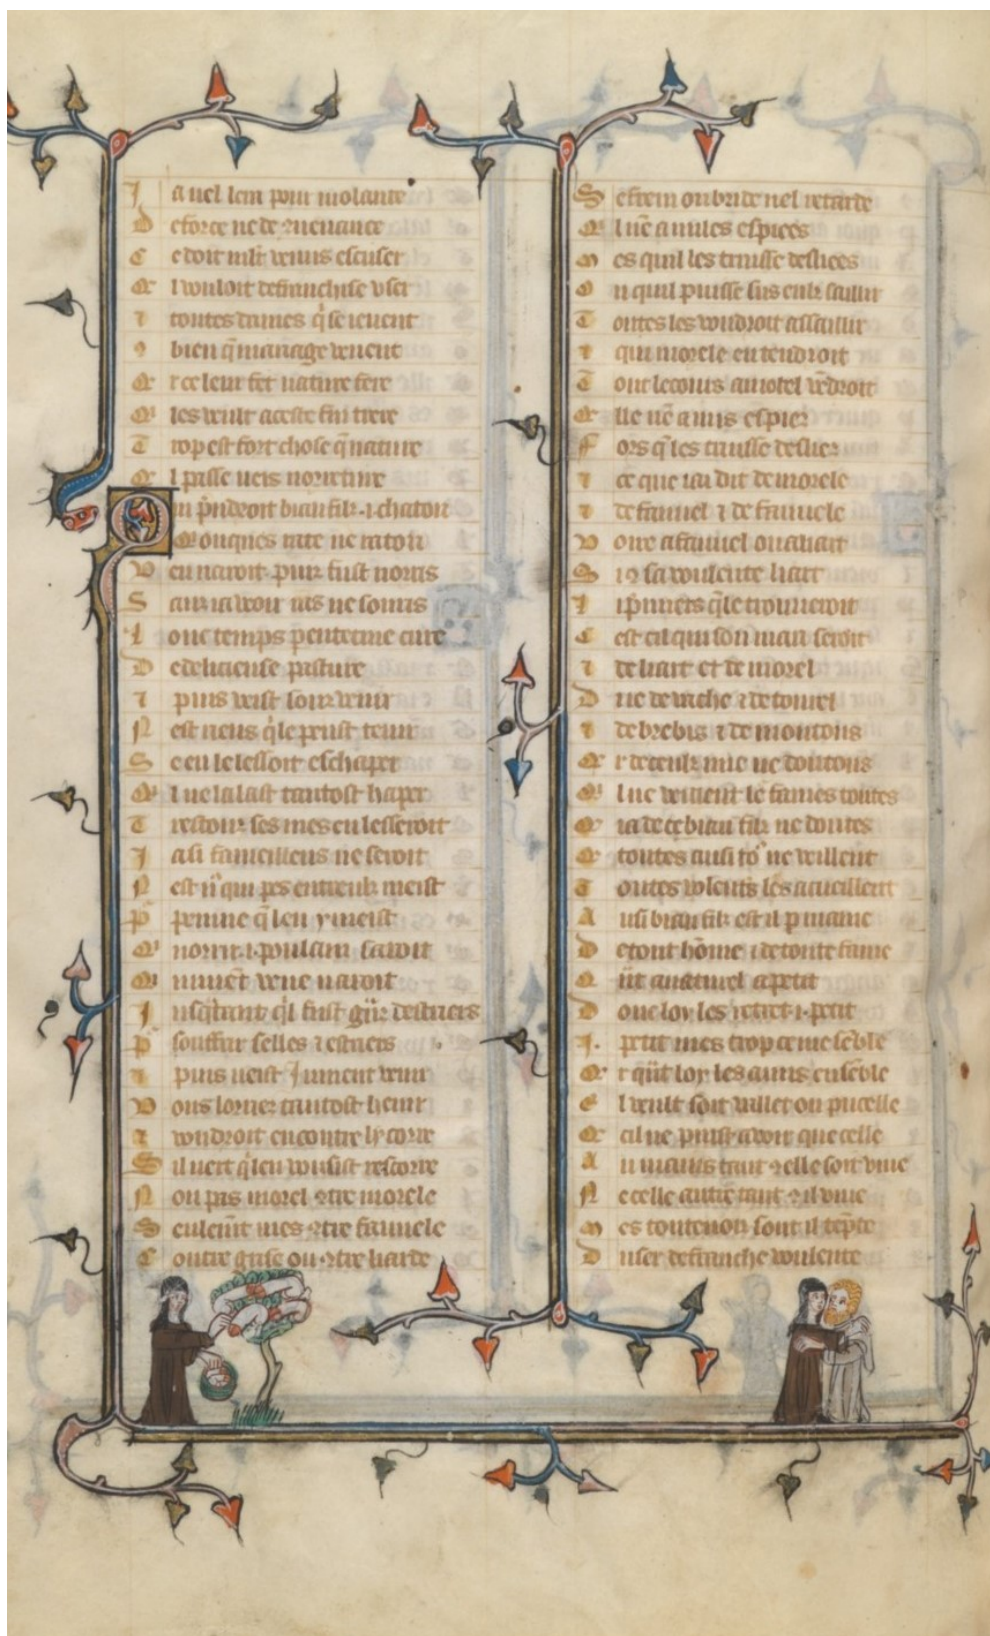 J a nel lera pour uiolance
D e force ne de 9uenance
C e doit mlt venus escuser
Q el vouloit de franchise vser
⁊ toutes dames q̃ se ieuent
9 bien q̃ mariage veuent
Q r ce leur fet nature fere
Q i les veult a ceste fin trere
T rop est fort chose q̃ nature
Q l passe neis norreture
Q ui p̃ndroit biau filz .i. chaton
Q i onques rate ne raton
V eu naroit puiz fust norris
S anz ia veoir ras ne soriz
L onc temps p̃ ententiue cure
D e delicieuse pasture
⁊ puis veist soriz venir
N est riens q̃ le peust tenir
S e en le lessoit eschaper
Q il ne lalast tantost haper
T restouz ses mes en lesseroit
J a si fameilleus ne seroit
N est riẽ qui pes entreulz meist
P̱ penne q̃ len y meist
Q i norrir .i. poulain saroit
Q i iumẽt veue naroit
J usq̃tant q̃l fust grãs destriers
P̱ souffrir selles ⁊ estriers
⁊ puis veist Jument venir
V ous lorriez tantost henir
⁊ voudroit encontre ly corre
S il nert q̃ len vousist rescorre
N on pas morel 9tre morele
S eulemẽt mes 9tre fauuele
C ontre grise ou 9tre liarde
S e frein ou bride nel retarde
Q il nẽ a nules espiees
M es quil les truisse desliees
O u quil puisse sus eulz saillir
T outes les voudroit assaillir
⁊ qui morele en tendroit
T out le cours a morel vẽdroit
Q elle nẽ a nus espiez
F ors q̃ les truisse desliez
⁊ ce que iai dit de morele
⁊ de fauuel ⁊ de fauuele
V oire a fauuel ou a liart
S is sa voulente liart
J p̃miers q̃le trouueroit
C est cil qui son mari seroit
⁊ de liart et de morel
D ne de vache ⁊ de torrel
⁊ de brebis ⁊ de moutons
Q r de ceulz mie ne doutons
Q il ne veillent le fames toutes
Q ia de ce biau filz ne doutes
Q toutes ausi toꝰ ne veillent
T outes volentiers les acueillent
A usi biau filz est il p mame
D e tout hõme ⁊ de toute fame
Q ãt a naturel apetit
D ont loy les retret .i. petit
.J. petit mes trop ce me sẽble
Q r q̃nt loy les a mis ensẽble
E l veult soit vallet ou pucelle
Q cil ne puist auoir que celle
A u mains tant 9 elle soit viue
N e celle autre tant 9 il viue
M es toutenoies sont il tẽpte
D user de franche voulente